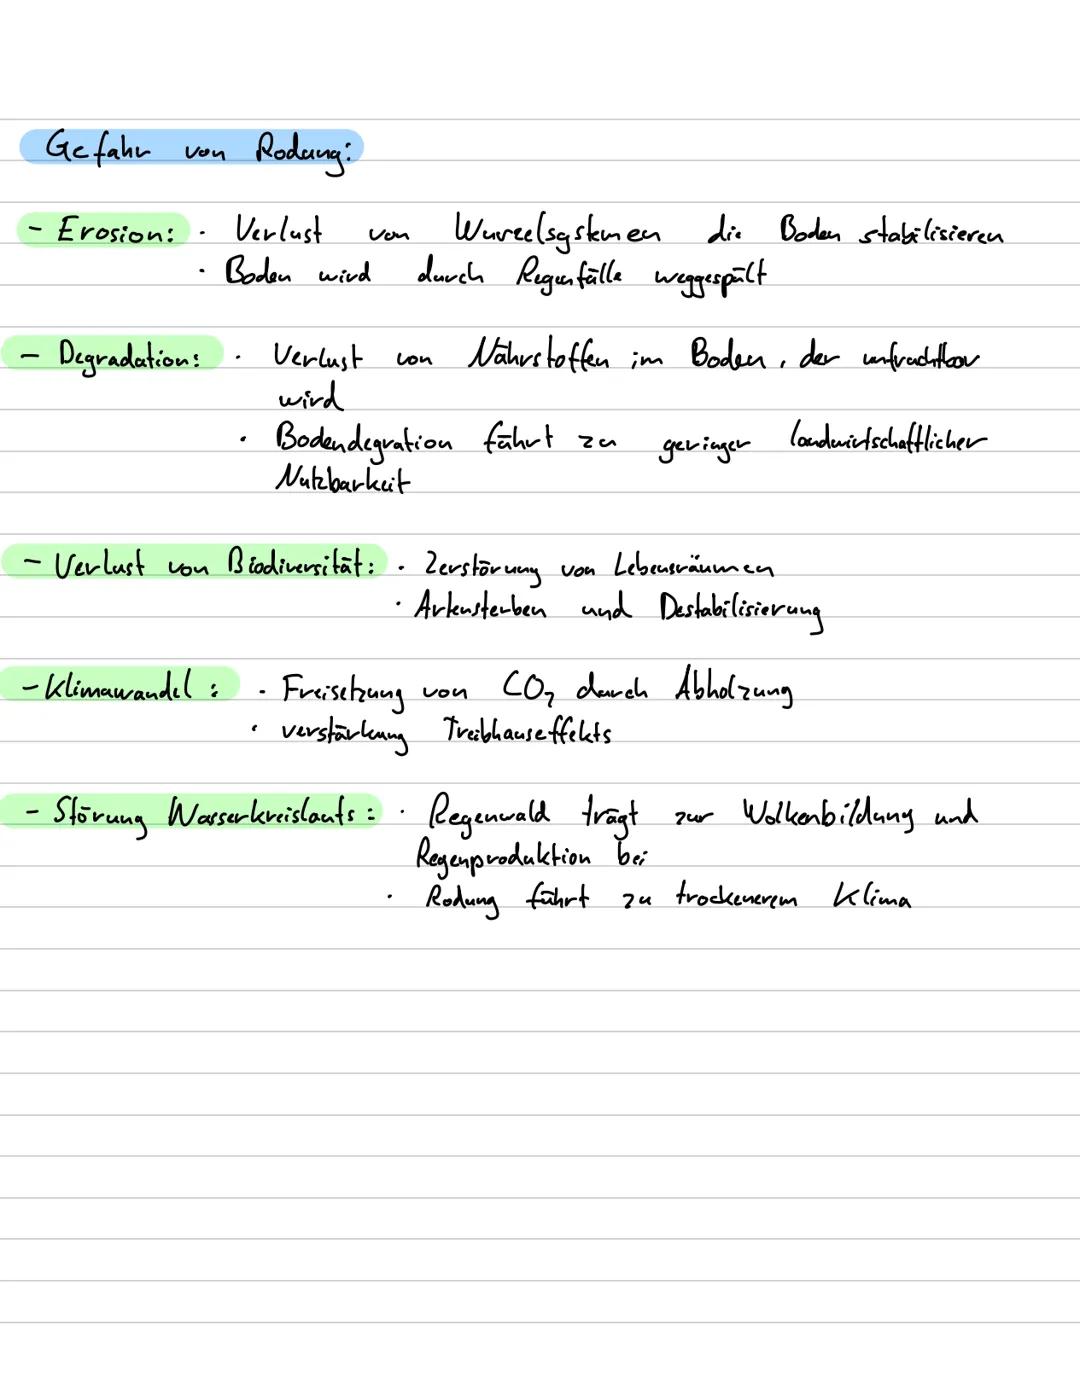 Gefahr von Rodung:
- Erosion: · Verlust von Wurzelsystemen die Boden stabilisieren
· Boden wird durch Regenfälle weggespült
- Degradation: · Verlust von Nährstoffen im Boden, der unfruchtbar
wird
· Bodendegration führt zu geringer landwirtschaftlicher
Nutzbarkeit
- Verlust von Biodiversität: · Zerstörung von Lebensräumen
· Artensterben und Destabilisierung
- Klimawandel: · Freisetzung von CO₂ durch Abholzung
· verstärkung Treibhauseffekts
- Störung Wasserkreislaufs: · Regenwald trägt zur Wolkenbildung und
Regenproduktion bei
· Rodung führt zu trockenerem Klima